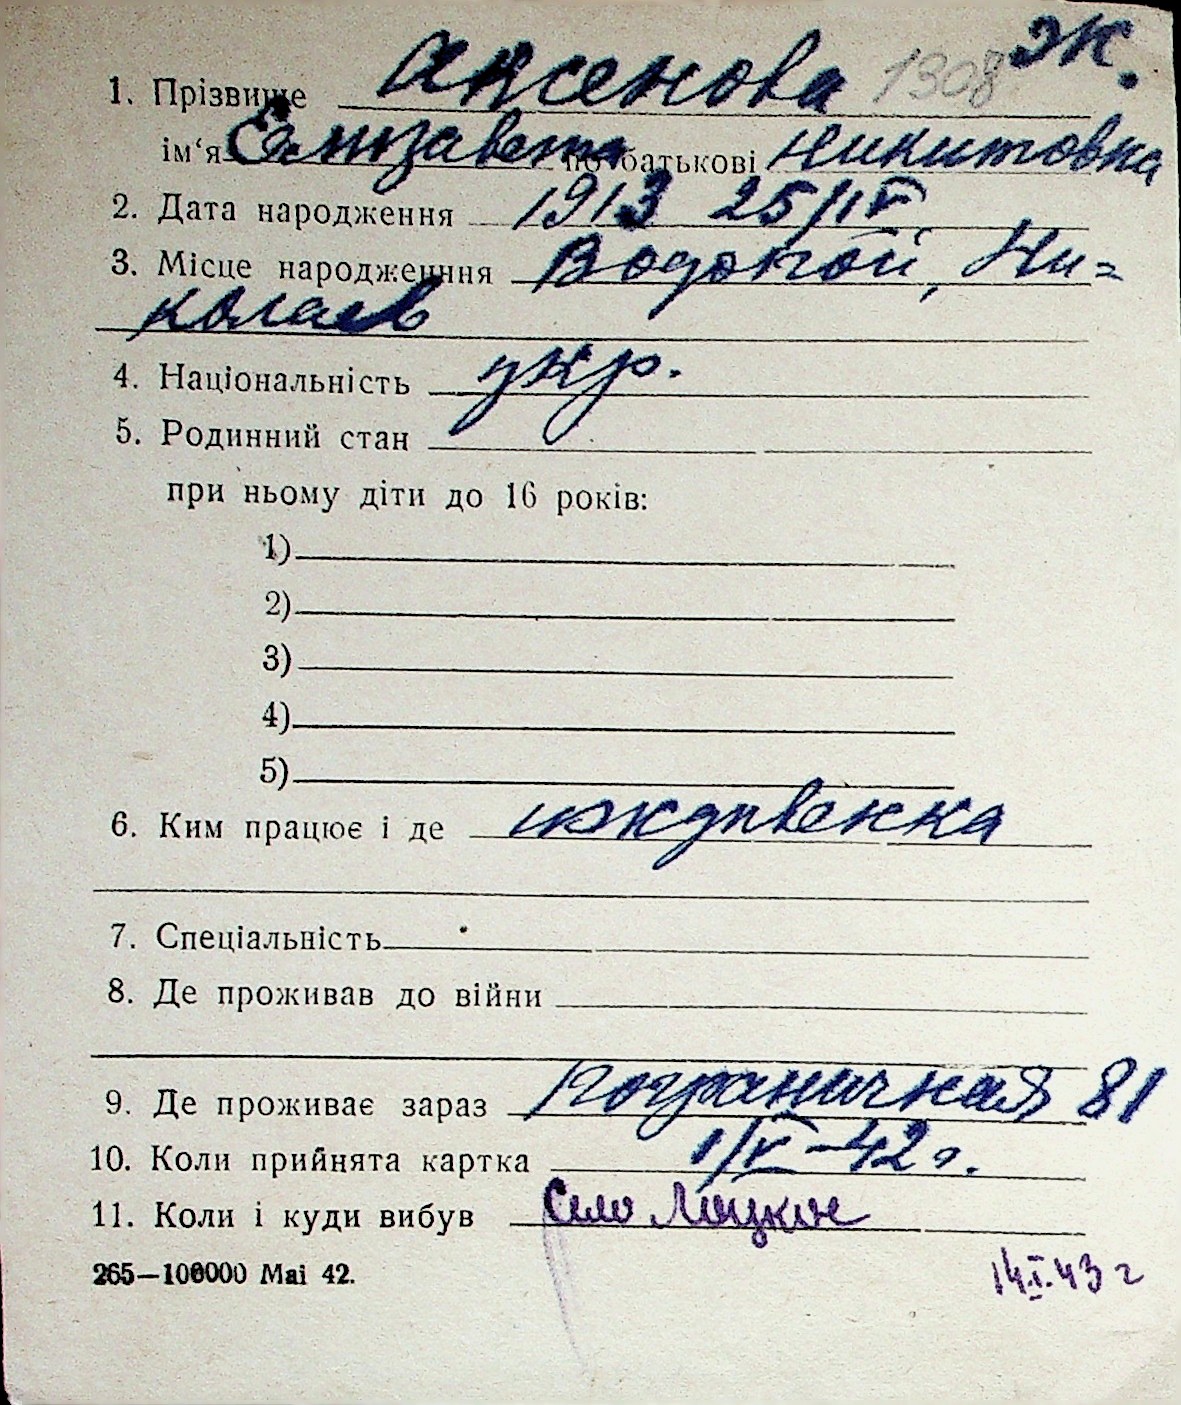 Ж.
1. Прізвище Аксенова 1308
ім'я Елизавета по батькові Никитовна
2. Дата народження 1913 25/IV
3. Місце народження Водопой, Ни=
колаев
4. Національність укр.
5. Родинний стан
при ньому діти до 16 років:
1)
2)
3)
4)
5)
6. Ким працює і де иждивенка
7. Спеціальність
8. Де проживав до війни
9. Де проживає зараз Пограничная 81
10. Коли прийнята картка 1/V-42 г.
11. Коли і куди вибув Село Лоцкое
265—100000 Mai 42.
14.I.43 г